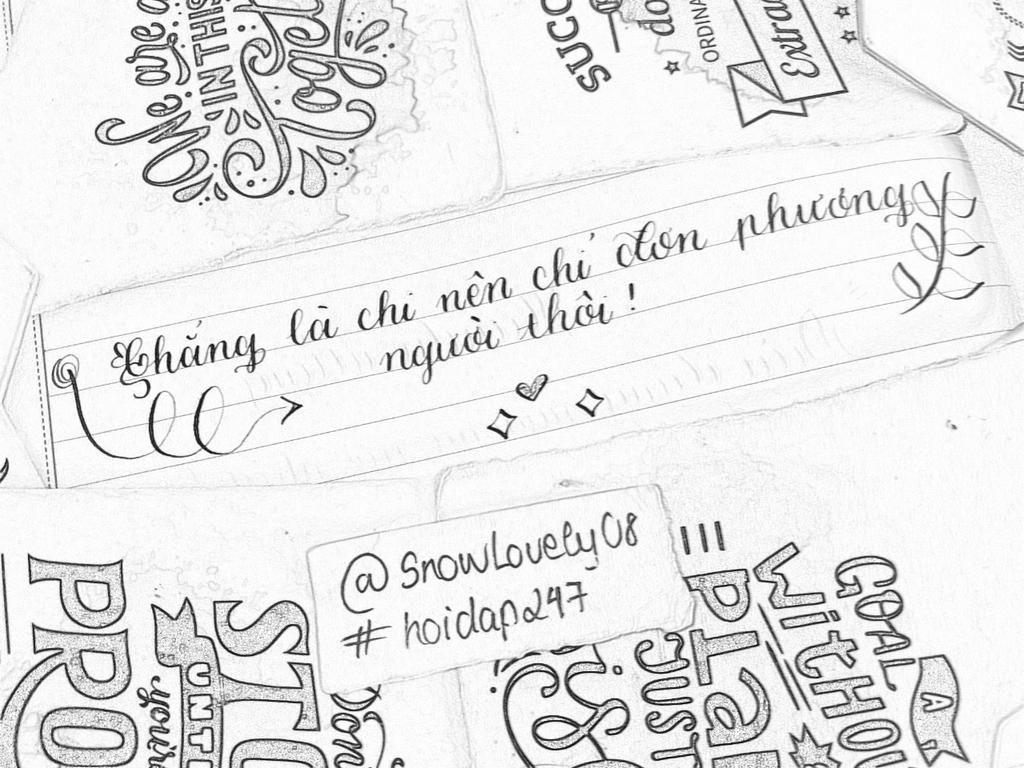 We are a
IN THIS
Togeth
SUCC
do
ORDINA
Extrao
Chẳng là chi nên chỉ đơn phương
người thôi !
@SnowLovely08
# hoidap247
PRO
STO
UNT
you're
Don
JUST
GOAL
WiTHOU
A
PLan